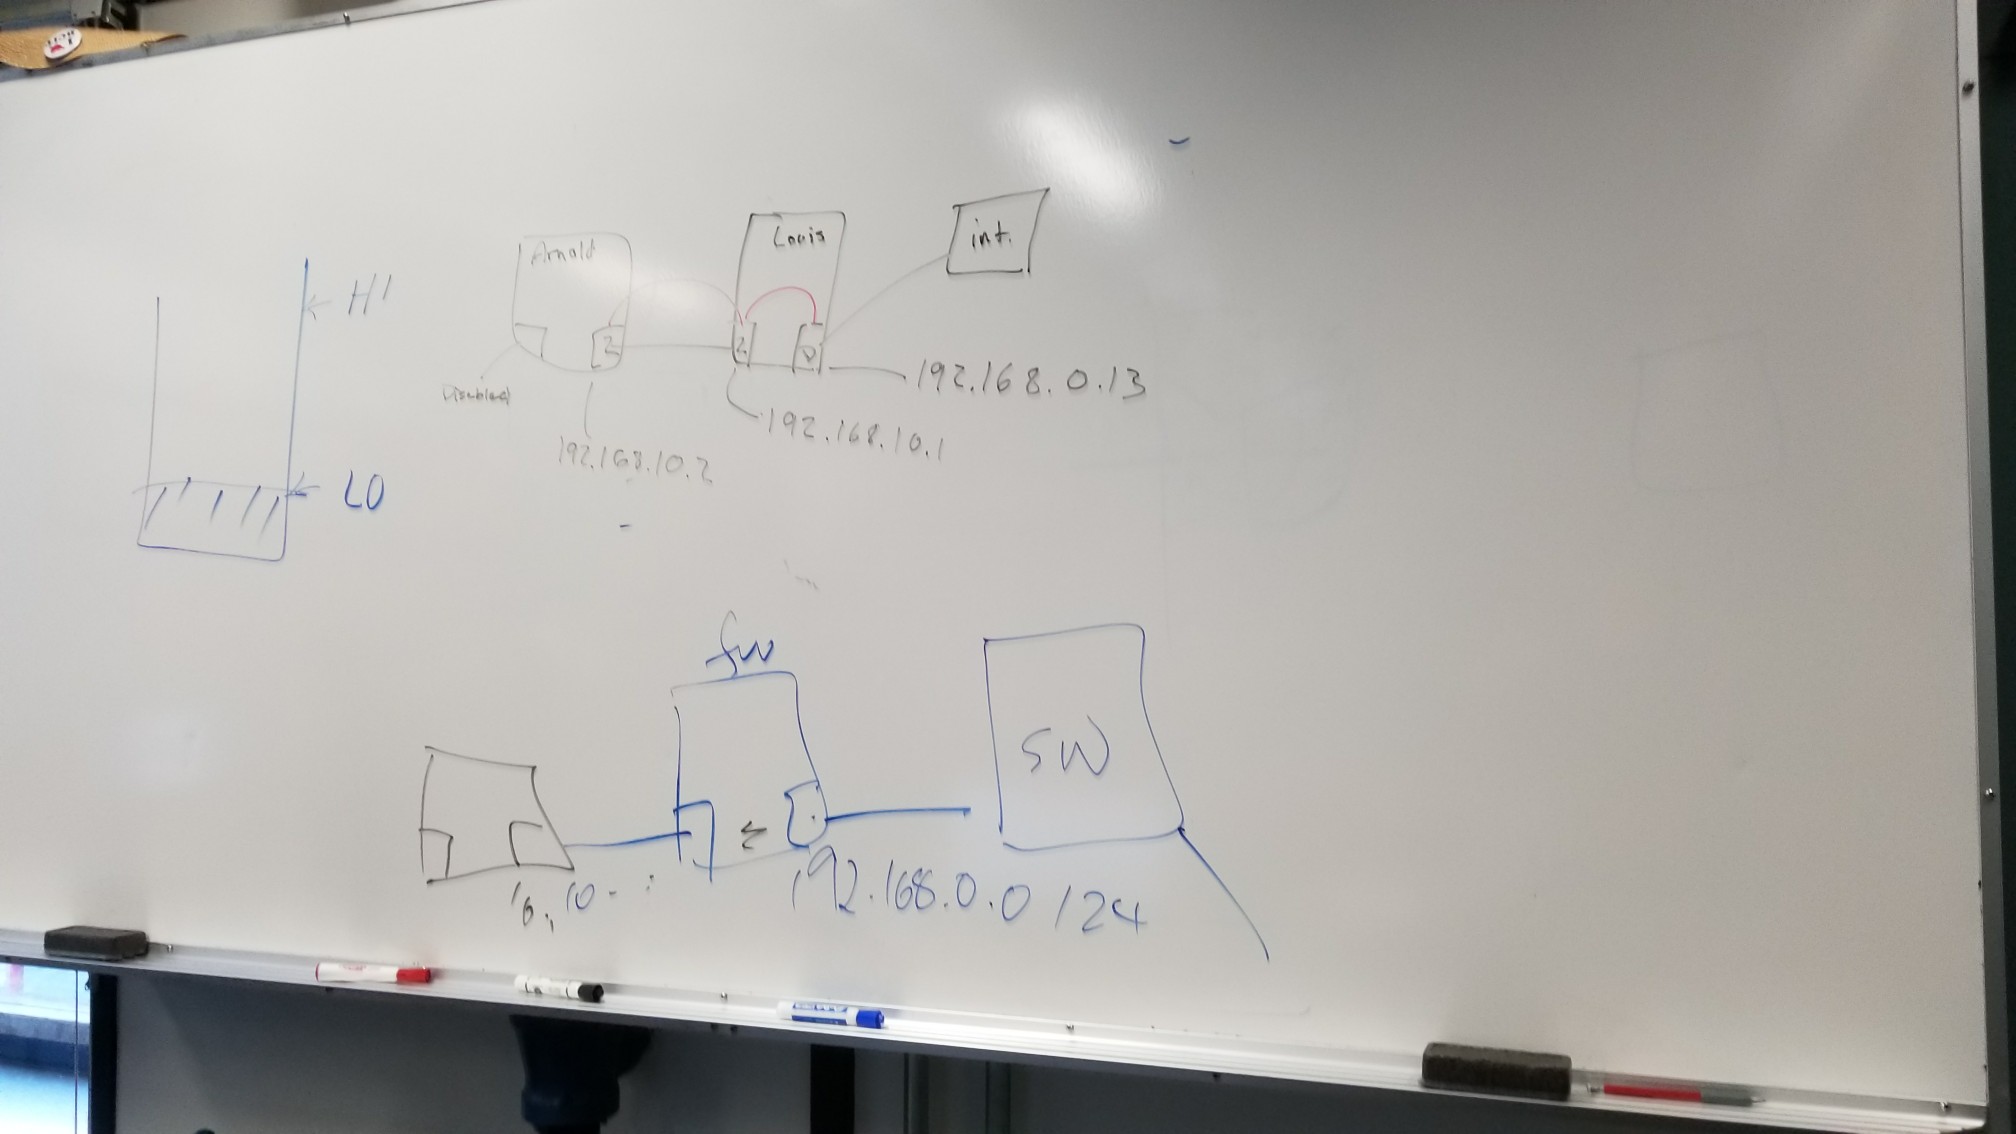 HI
LO
Arnold
2
Disabled
192.168.10.2
Louis
2
0
192.168.10.1
192.168.0.13
int.
fw
SW
192.168.0.0/24